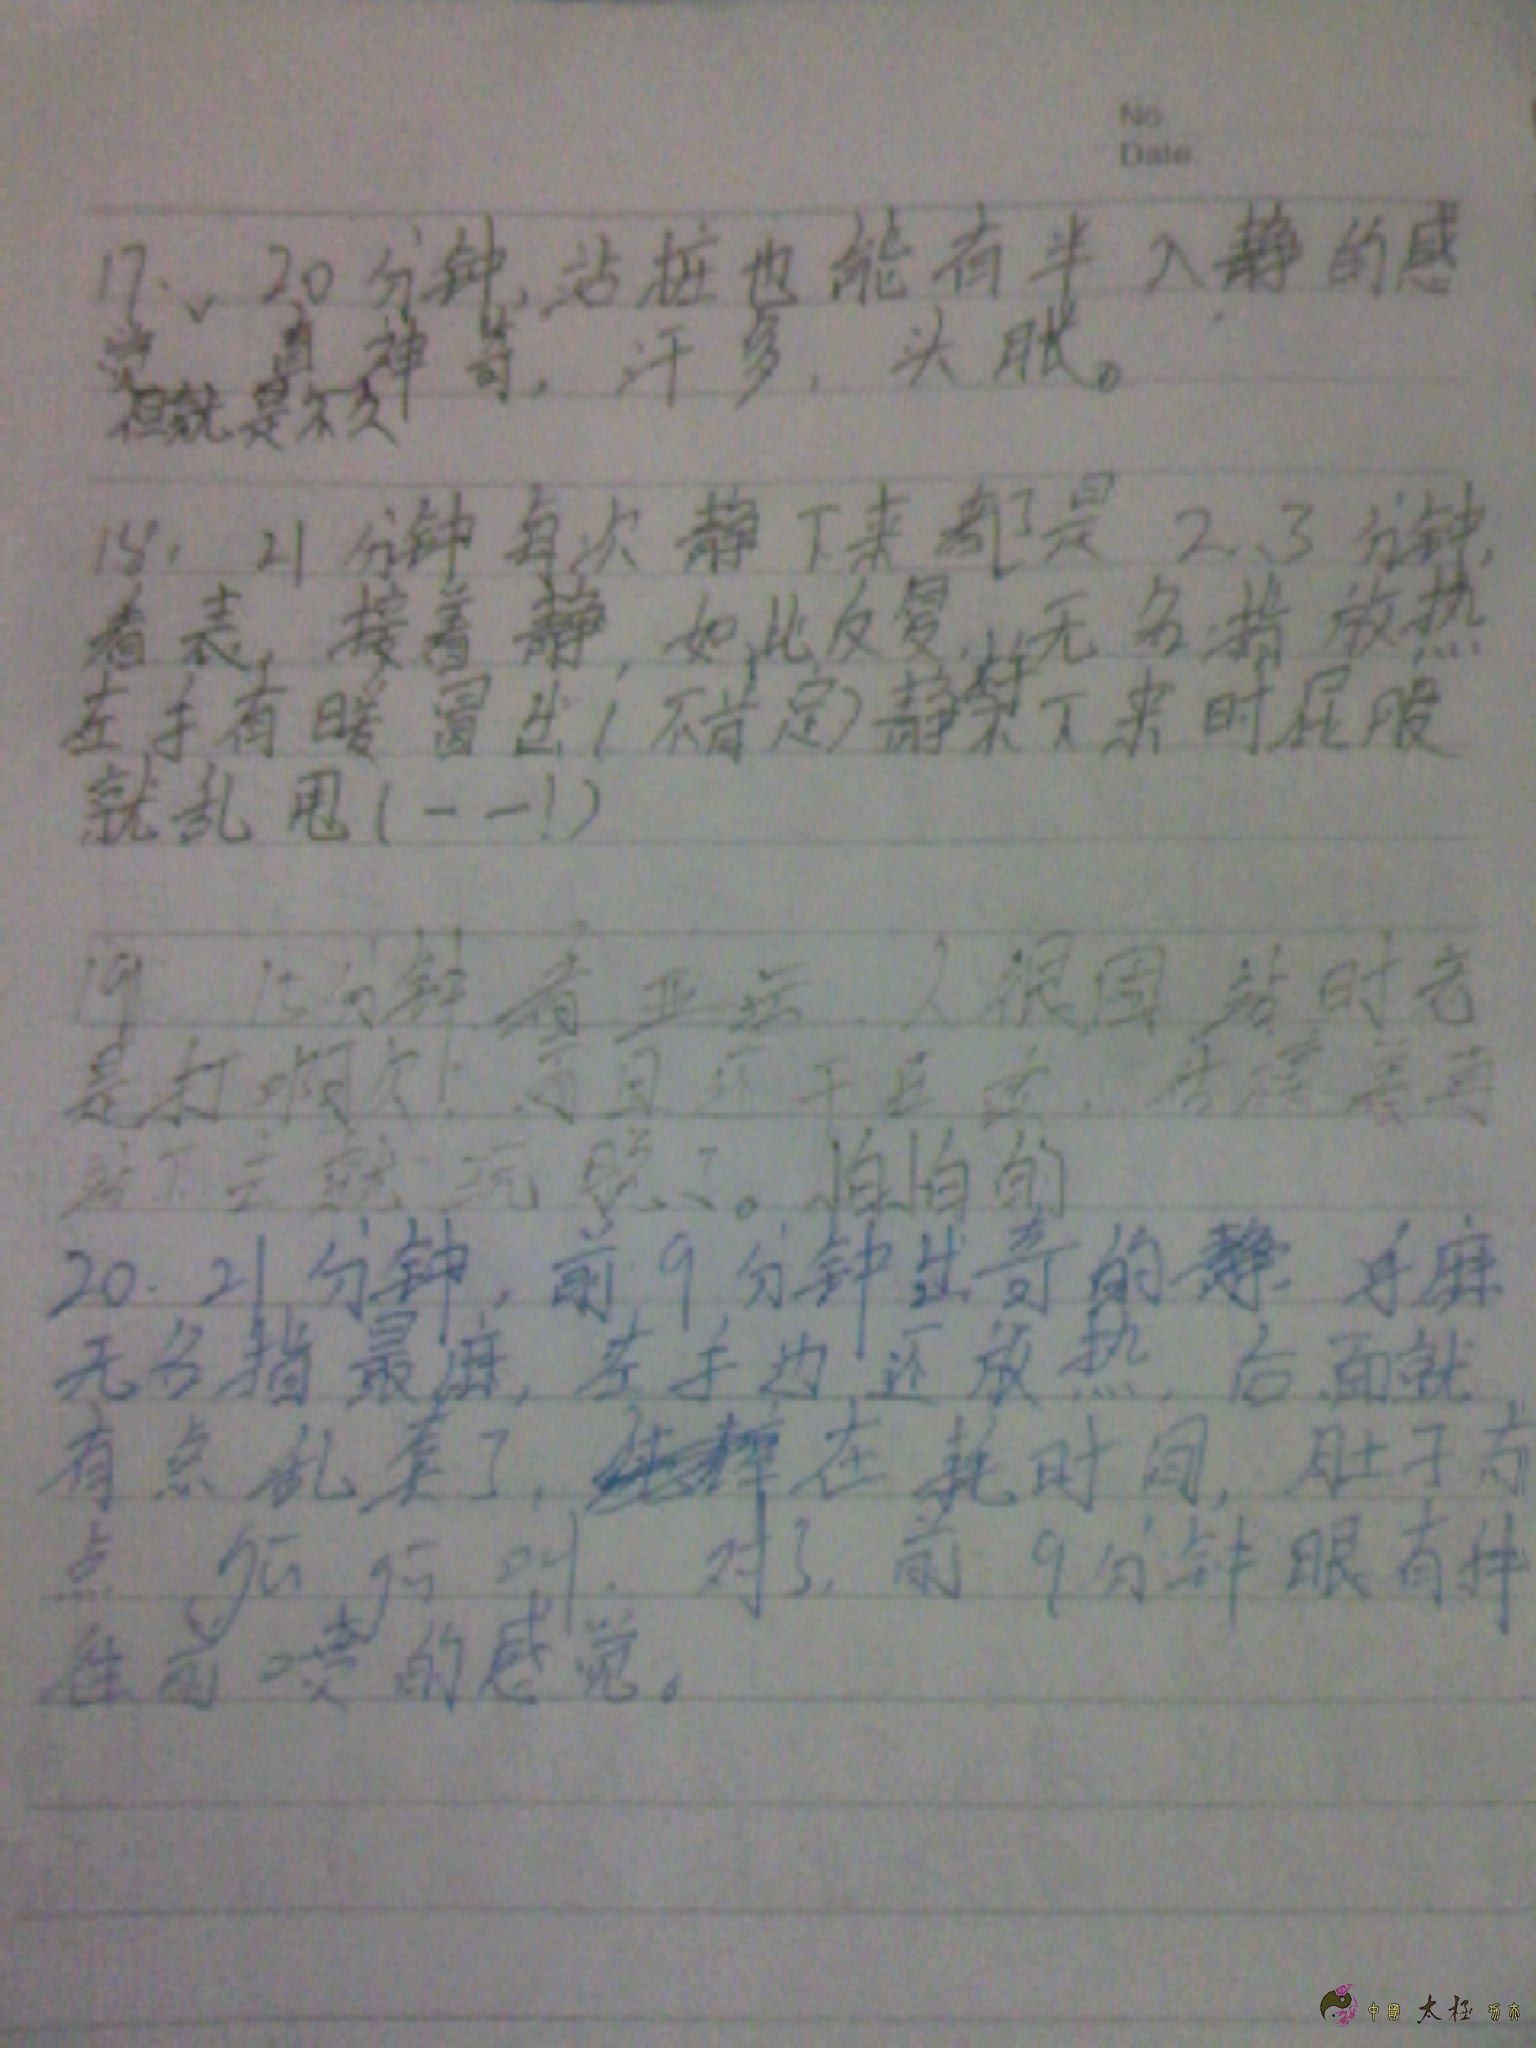 No
Date
17. 20分钟,站桩也能有半入静的感
觉 真神奇,汗多,头胀。
但就是不久
18. 21分钟每次静下来都是2、3分钟,
看表,接着静,如此反复,无名指放热
左手有暖冒出(不肯定)静下来时屁股
就乱甩(一一!)
19 15分钟看亚运,人很困 站时老
是打哈欠,而且还
就玩脱了。怕怕的
20. 21分钟,前9分钟出奇的静 手麻
无名指最麻,左手边还放热,后面就
有点乱套了,在耗时间,肚子有
点 叫,对了,前9分钟眼有种
往前喷的感觉。
中國太極功夫